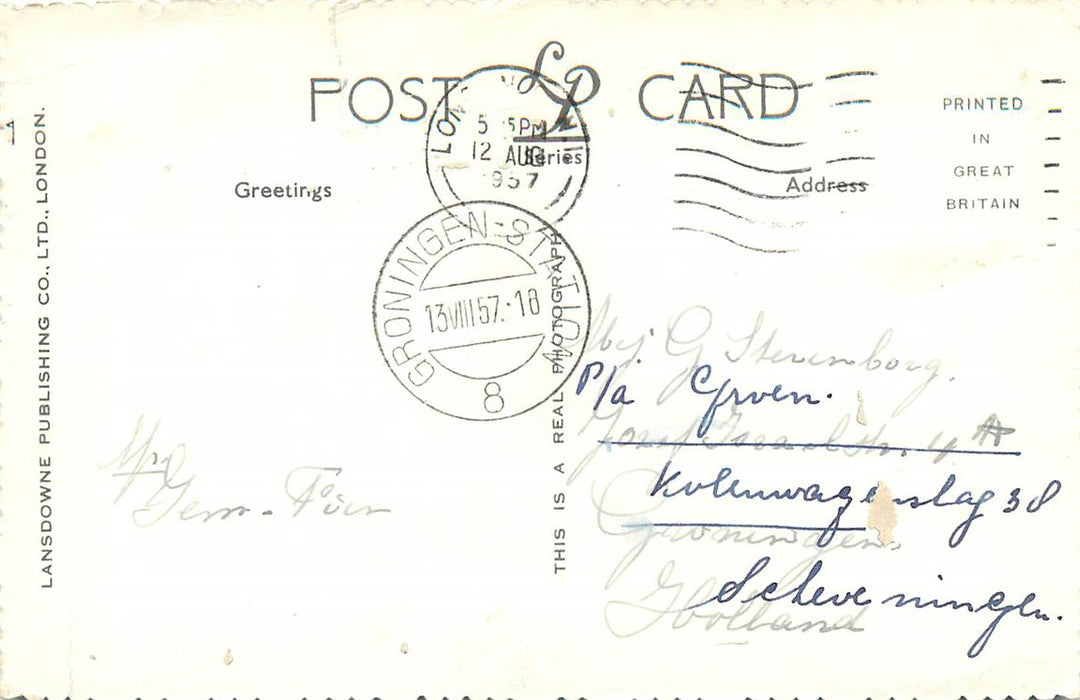 POST CARD
LP
Series
PRINTED
IN
GREAT
BRITAIN
Greetings
Address
LANSDOWNE PUBLISHING CO., LTD., LONDON.
THIS IS A REAL PHOTOGRAPH
LON
5 15 PM
12 AUG
1957
GRONINGEN-STATION
13 VIII 57.-18
8
Mej G Sterenborg.
P/a Groen.
Jozef Israelstr. 4 A
Kolenwagenslag 38
Groningen.
Scheveningen.
Holland